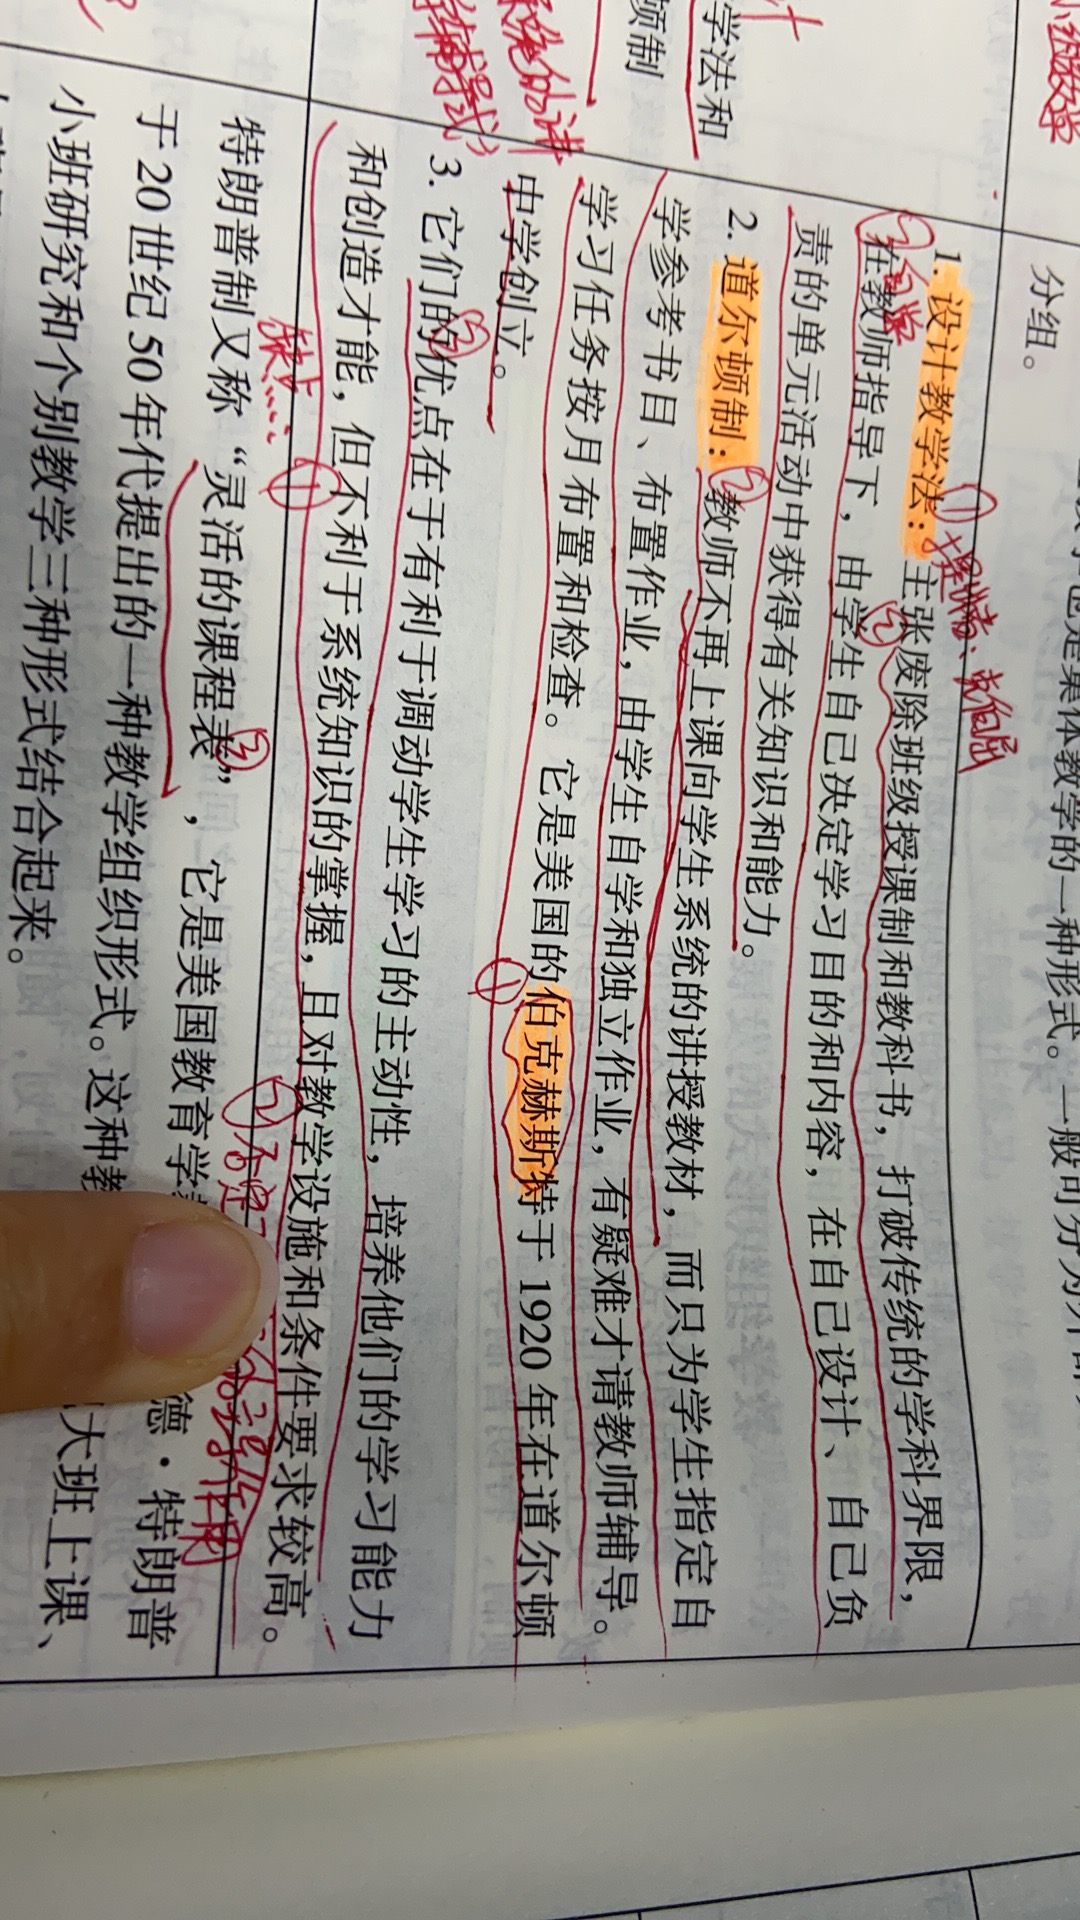 小组教学
分组。
学法和
顿制
① 提倡者：克伯屈
1. 设计教学法：主张废除班级授课制和教科书，打破传统的学科界限，
在教师指导下，由学生自己决定学习目的和内容，在自己设计、自己负
责的单元活动中获得有关知识和能力。
2. 道尔顿制：教师不再上课向学生系统的讲授教材，而只为学生指定自
学参考书目、布置作业，由学生自学和独立作业，有疑难才请教师辅导。
学习任务按月布置和检查。它是美国的伯克赫斯特于 1920 年在道尔顿
中学创立。
3. 它们的优点在于有利于调动学生学习的主动性，培养他们的学习能力
和创造才能，但不利于系统知识的掌握，且对教学设施和条件要求较高。
缺点
特朗普制又称“灵活的课程表”，它是美国教育学
德·特朗普
于 20 世纪 50 年代提出的一种教学组织形式。这种教
大班上课、
小班研究和个别教学三种形式结合起来。